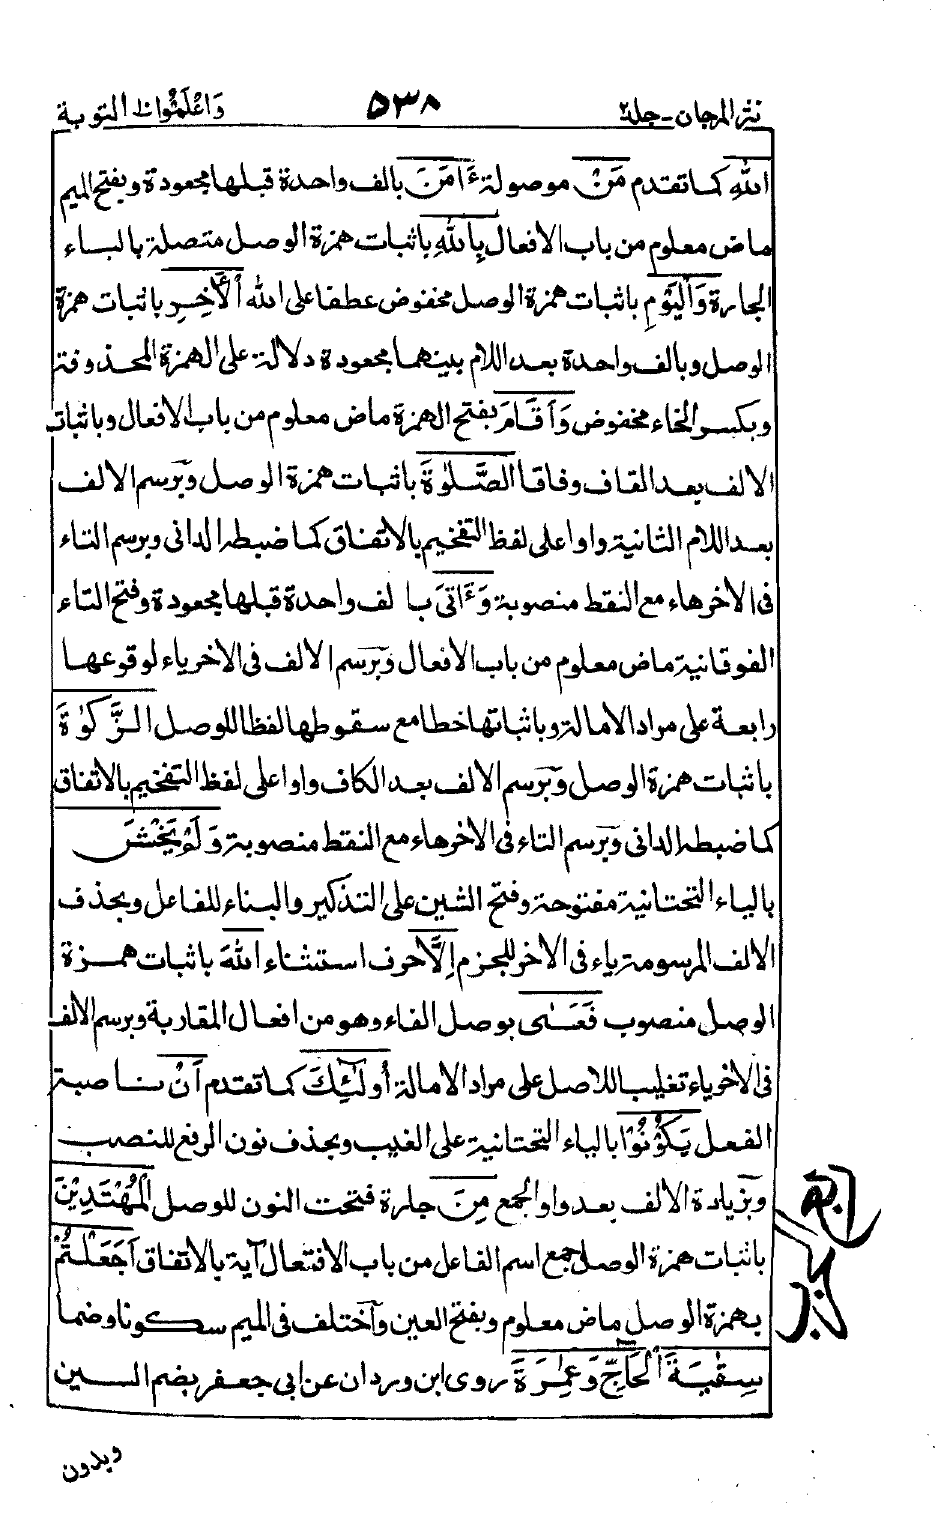 نثر المرجان - جلد٢ ٥٣٨ واعلموا١٠ التوبة
اللهِ كما تقدم مَنْ موصولة ءَامَنَ بالف واحدة قبلها مجعودة وبفتح الميم
ماض معلوم من باب الافعال بِاللهِ باثبات همزة الوصل متصلة بالباء
الجارة وَالْيَوْمِ باثبات همزة الوصل مخفوض عطفا على الله الْآخِرِ باثبات همزة
الوصل وبالف واحدة بعد اللام بينهما مجعودة دلالة على الهمزة المحذوفة
وبكسر الخاء مخفوض وَأَقَامَ بفتح الهمزة ماض معلوم من باب الافعال وباثبات
الالف بعد القاف وفاقا الصَّلٰوةَ باثبات همزة الوصل وبرسم الالف
بعد اللام الثانية واوا على لفظ التفخيم بالاتفاق كما ضبطه الدانى وبرسم التاء
فى الاخر هاء مع النقط منصوبة وَءَاتَى بالف واحدة قبلها مجعودة وفتح التاء
الفوقانية ماض معلوم من باب الافعال وبرسم الالف فى الاخر ياء لوقوعها
رابعة على مراد الامالة وباثباتها خطا مع سقوطها لفظا للوصل الزَّكٰوةَ
باثبات همزة الوصل وبرسم الالف بعد الكاف واوا على لفظ التفخيم بالاتفاق
كما ضبطه الدانى وبرسم التاء فى الاخر هاء مع النقط منصوبة وَلَمْ يَخْشَ
بالياء التحتانية مفتوحة وفتح الشين على التذكير والبناء للفاعل وبحذف
الالف المرسومة ياء فى الاخر للجزم اِلَّا حرف استثناء اللهَ باثبات همزة
الوصل منصوب فَعَسٰى بوصل الفاء وهو من افعال المقاربة وبرسم الالف
فى الاخر ياء تغليبا للاصل على مراد الامالة أُولٰئِكَ كما تقدم اَنْ ناصبة
الفعل يَكُوْنُوْا بالياء التحتانية على الغيب وبحذف نون الرفع للنصب
وبزيادة الالف بعد واو الجمع مِنَ جارة فتحت النون للوصل الْمُهْتَدِيْنَ
باثبات همزة الوصل جمع اسم الفاعل من باب الافتعال آية بالاتفاق اَجَعَلْتُمْ
بهمزة الوصل ماض معلوم وبفتح العين واختلف فى الميم سكونا وضما
سِقٰيَةَ الْحَاجِّ وَعِمٰرَةَ روى ابن وردان عن ابى جعفر بضم السين
وبدون